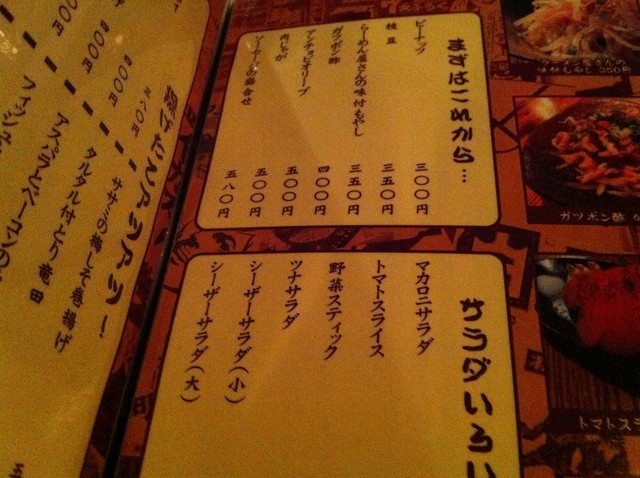 まずはこれから…
ピーナッツ 三〇〇円
枝豆 三五〇円
らーめん屋さんの味付もやし 三五〇円
ガツポン酢 四〇〇円
アンチョビオリーブ 五〇〇円
肉じゃが 五〇〇円
ソーセージの盛合せ 五八〇円
サラダいろい
マカロニサラダ
トマトスライス
野菜スティック
ツナサラダ
シーザーサラダ(小)
シーザーサラダ(大)
揚げたてアツアツ!
ササミの梅しそ巻揚げ
タルタル付とり竜田
アスパラとベーコンの
フィッシュ
ラーメン屋さんの
味付もやし 350円
ガツポン酢
トマトスラ